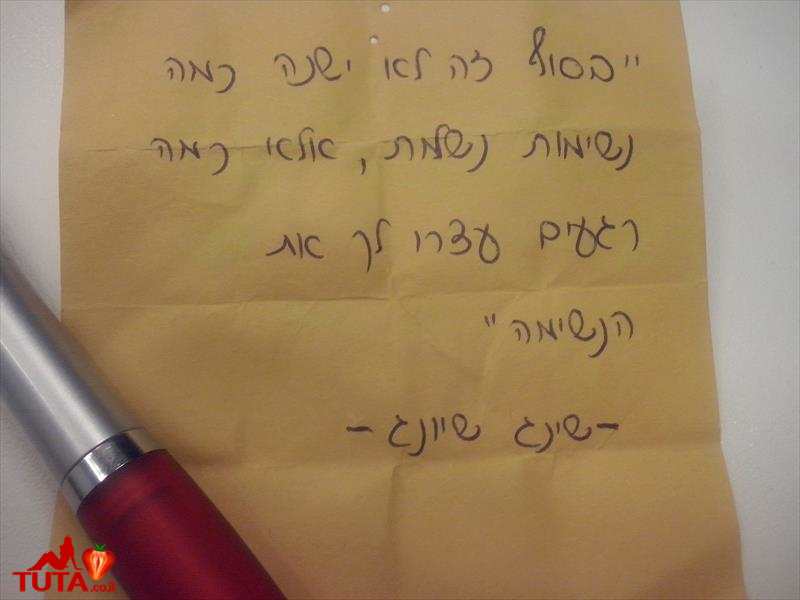 "בסוף זה לא ישנה כמה
נשימות נשמת, אלא כמה
רגעים עצרו לך את
הנשימה"
-שינג שיונג-
TUTA.co.il